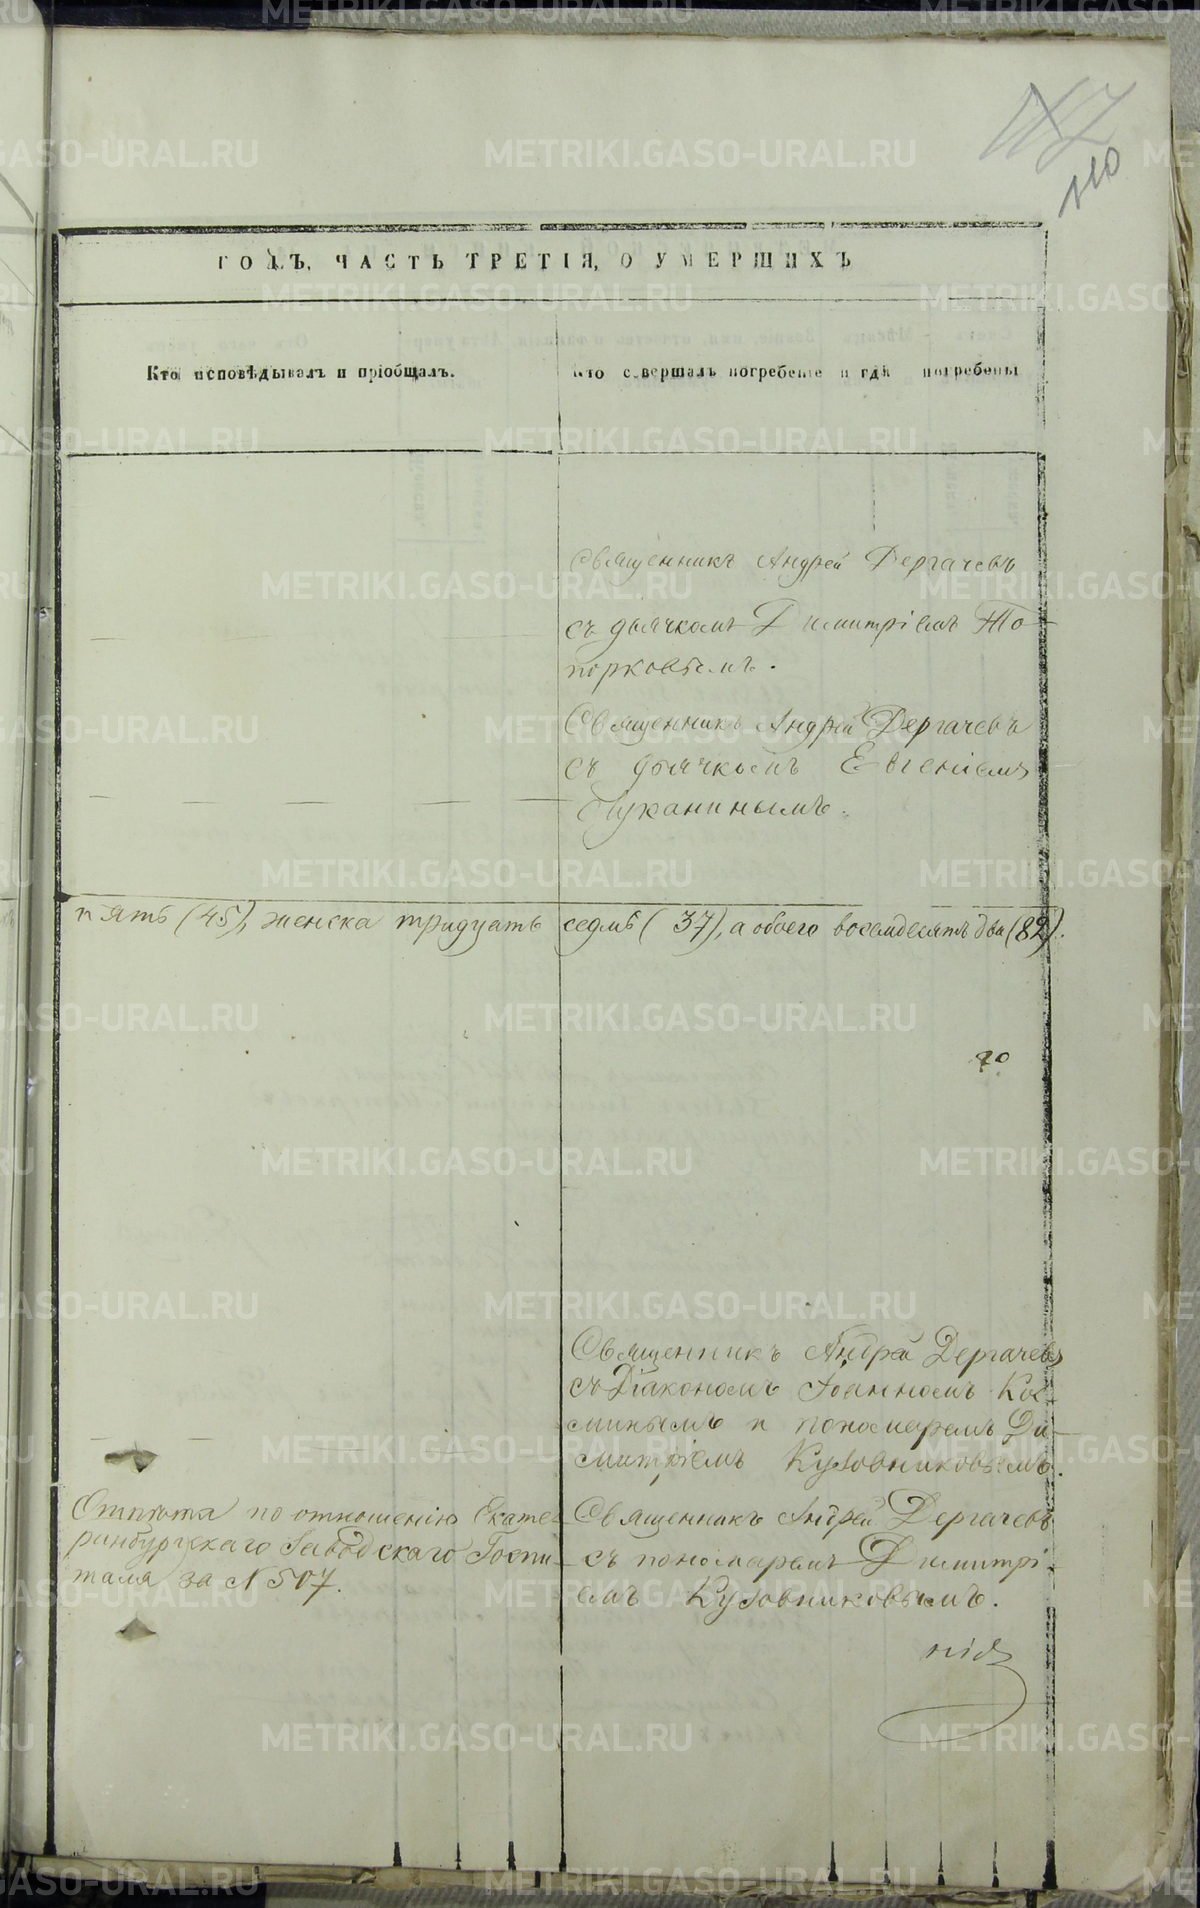 110
ГОДЪ, ЧАСТЬ ТРЕТІЯ, О УМЕРШИХЪ
Кто исповѣдывалъ и пріобщалъ.
Кто совершалъ погребеніе и гдѣ погребены
Священникъ Андрей Дергачевъ
съ дьячкомъ Димитріемъ То-
порковымъ.
Священникъ Андрей Дергачевъ
съ дьячкомъ Евгеніемъ
Пуканинымъ.
пять (45), женска тридцать седмь (37), а обоего восемдесять два (82).
Священникъ Андрей Дергачевъ
съ Діакономъ Іоанномъ Кос-
минымъ и пономаремъ Ди-
митріемъ Кузовниковымъ.
Отпѣта по отношенію Екате-
ринбургскаго Заводскаго Госпи-
таля за N 507.
Священникъ Андрей Дергачевъ
съ пономаремъ Димитрі-
емъ Кузовниковымъ.
METRIKI.GASO-URAL.RU